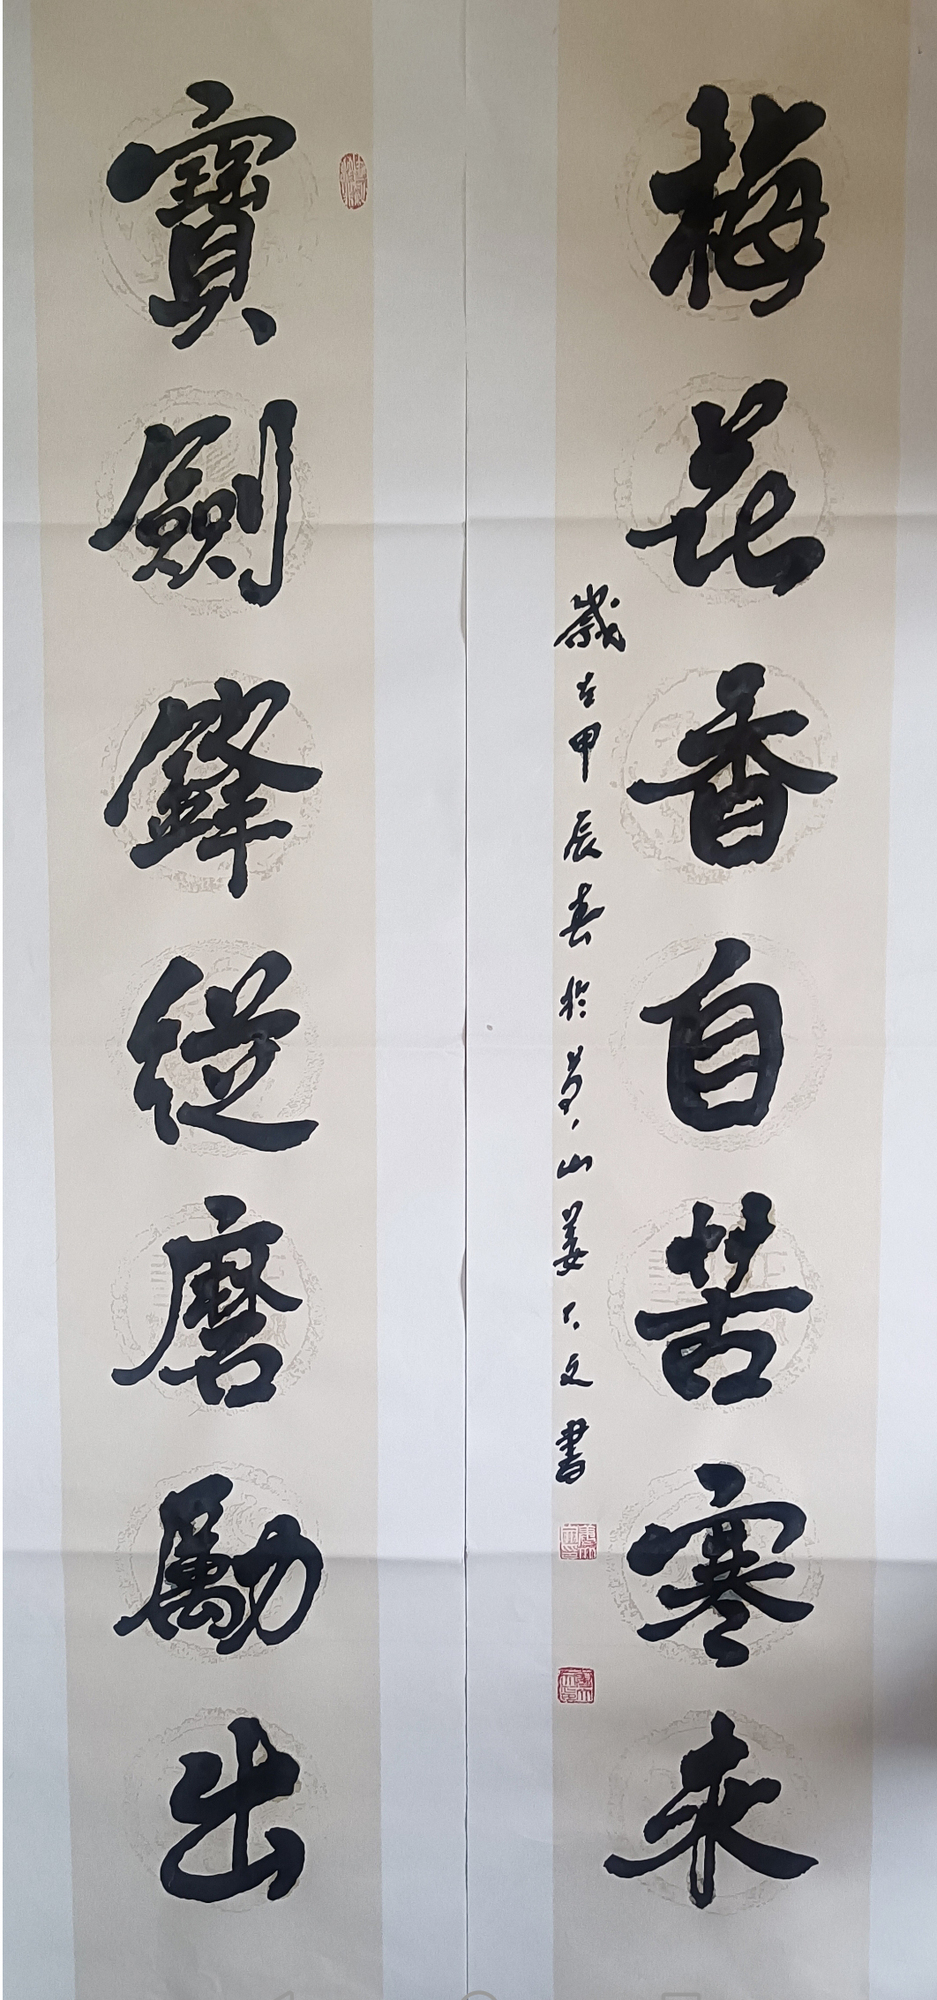 寶劍鋒從磨勵出
梅花香自苦寒来
歲在甲辰春於山姜文書